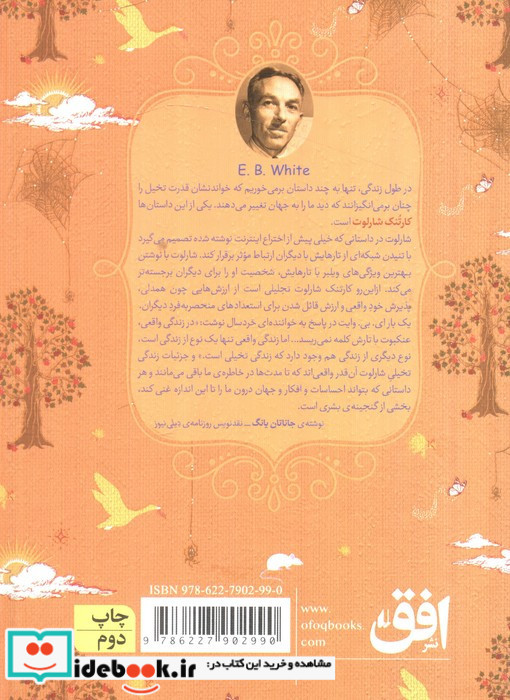 E. B. White
در طول زندگی، تنها به چند داستان برمی‌خوریم که خواندنشان قدرت تخیل را
چنان برمی‌انگیزانند که دید ما را به جهان تغییر می‌دهند. یکی از این داستان‌ها
کارتُنک شارلوت است.
شارلوت در داستانی که خیلی پیش از اختراع اینترنت نوشته شده تصمیم می‌گیرد
با تنیدن شبکه‌ای از تارهایش با دیگران ارتباط مؤثر برقرار کند. شارلوت با نوشتن
بهترین ویژگی‌های ویلبر با تارهایش، شخصیت او را برای دیگران برجسته‌تر
می‌کند. ازاین‌رو کارتنک شارلوت تجلیلی است از ارزش‌هایی چون همدلی،
پذیرش خودِ واقعی و ارزش قائل شدن برای استعدادهای منحصربه‌فرد دیگران.
یک بار ای. بی. وایت در پاسخ به خواننده‌ای خردسال نوشت: «در زندگی واقعی،
عنکبوت با تارش کلمه نمی‌ریسد... اما زندگی واقعی تنها یک نوع از زندگی است.
نوع دیگری از زندگی هم وجود دارد که زندگی تخیلی است.» و جزئیات زندگی
تخیلی شارلوت آن‌قدر واقعی‌اند که تا مدت‌ها در خاطره‌ی ما باقی می‌مانند و هر
داستانی که بتواند احساسات و افکار و جهان درون ما را تا این اندازه غنی کند،
بخشی از گنجینه‌ی بشری است.
نوشته‌ی جاناتان یانگ ــ نقدنویس روزنامه‌ی دیلی‌نیوز
ISBN 978-622-7902-99-0
9 786227 902990
چاپ
دوم
www.
ofoqbooks.
com
نشر افق
idebook.ir
مشاهده و خرید این کتاب در: